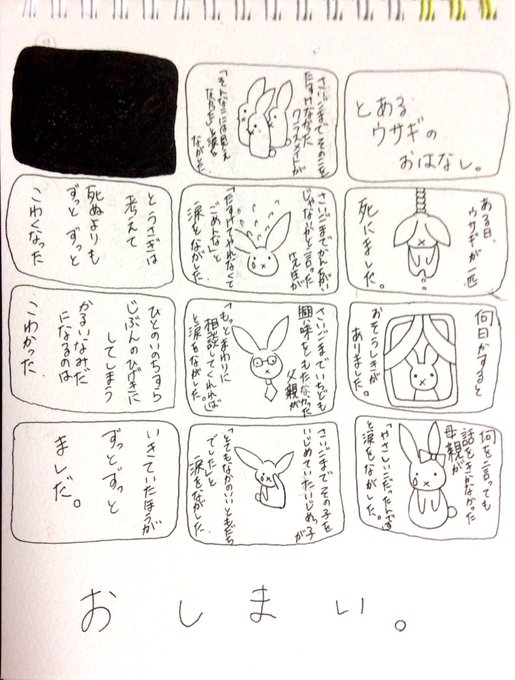 とある
ウサギの
おはなし。
ある日、
ウサギが一匹
死にました。
何日かすると
おそうしきが
ありました。
何を言っても
話をきかなかった
母親が
「やさしい子だったんです」
と涙をながした。
さいごまでその子を
たすけなかった
クラスメイトが
「そんなふうには見え
なかった」と涙を
ながした。
さいごまでかんちがい
じゃないかと言った
先生が
「たすけてやれなくて
ごめんな」と
涙をながした。
さいごまでいちども
興味をもたなかった
父親が
「もっとまわりに
相談してくれれば」
と涙をながした。
さいごまでその子を
いじめていたいじめっ子が
「とてもなかのいいともだち
でした」と
涙をながした
とうさぎは
考えて
死ぬよりも
ずっとずっと
こわくなった
ひとのいのちすら
じぶんのひげきに
してしまう
かるいなみだ
になるのは
こわかった
いきていたほうが
ずっとずっと
マシだ。
おしまい。